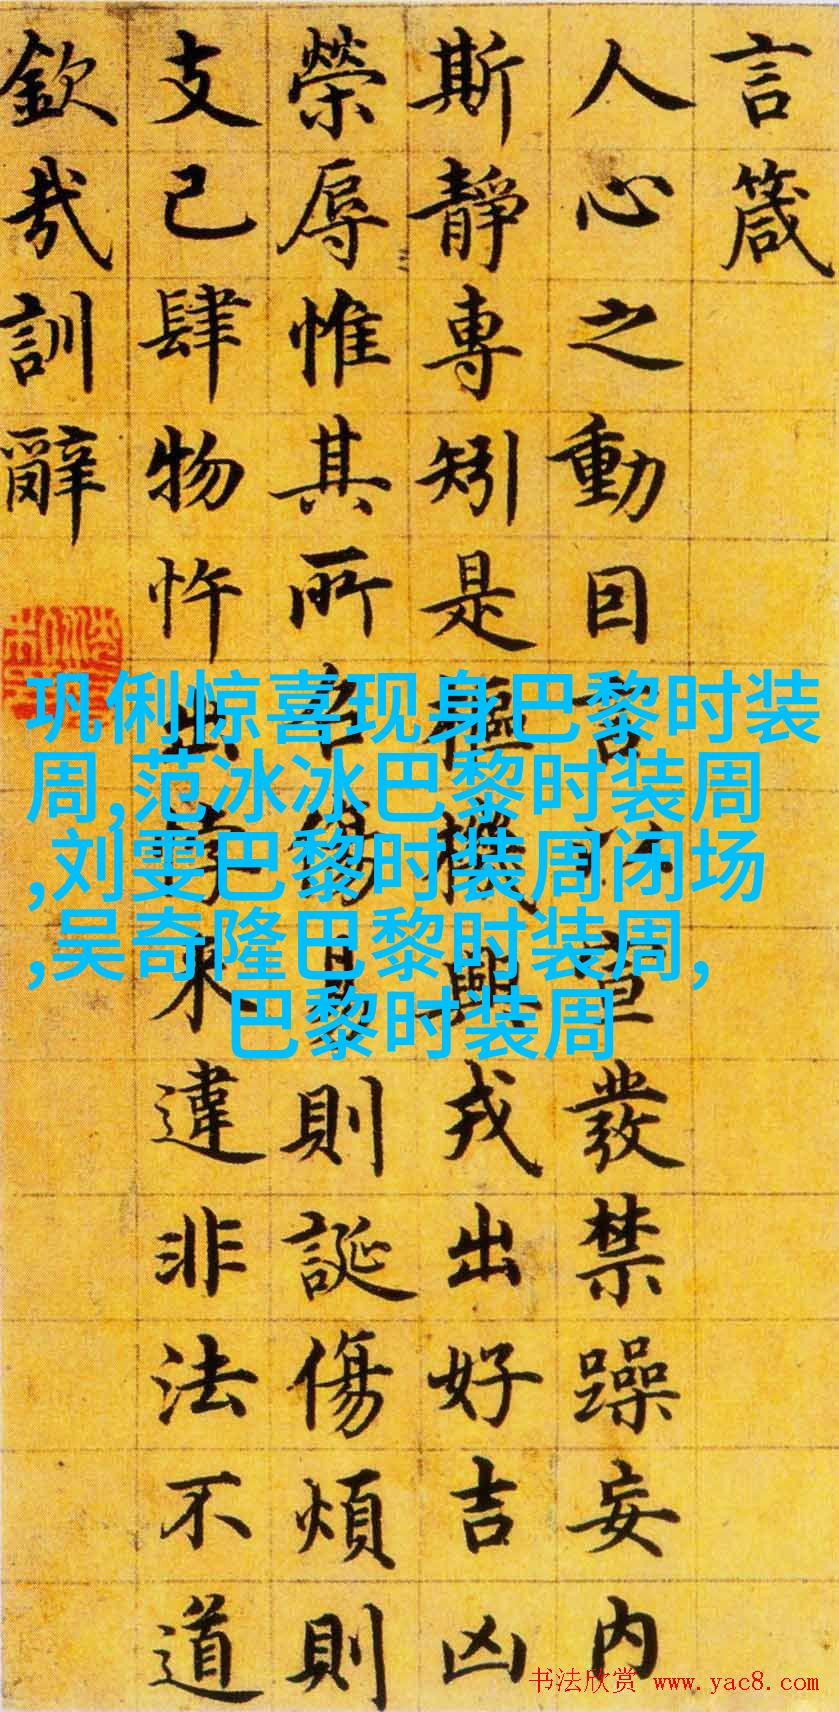 言箴
人心之動因言以宣發禁躁妄内
斯靜專矧是樞機興戎出好吉凶
榮辱惟其所召傷易則誕傷煩則
支己肆物忤出悖來違非法不道
欽哉訓辭
巩俐惊喜现身巴黎时装
周,范冰冰巴黎时装周
,刘雯巴黎时装周闭场
,吴奇隆巴黎时装周,
巴黎时装周
书法欣赏 www.yac8.com